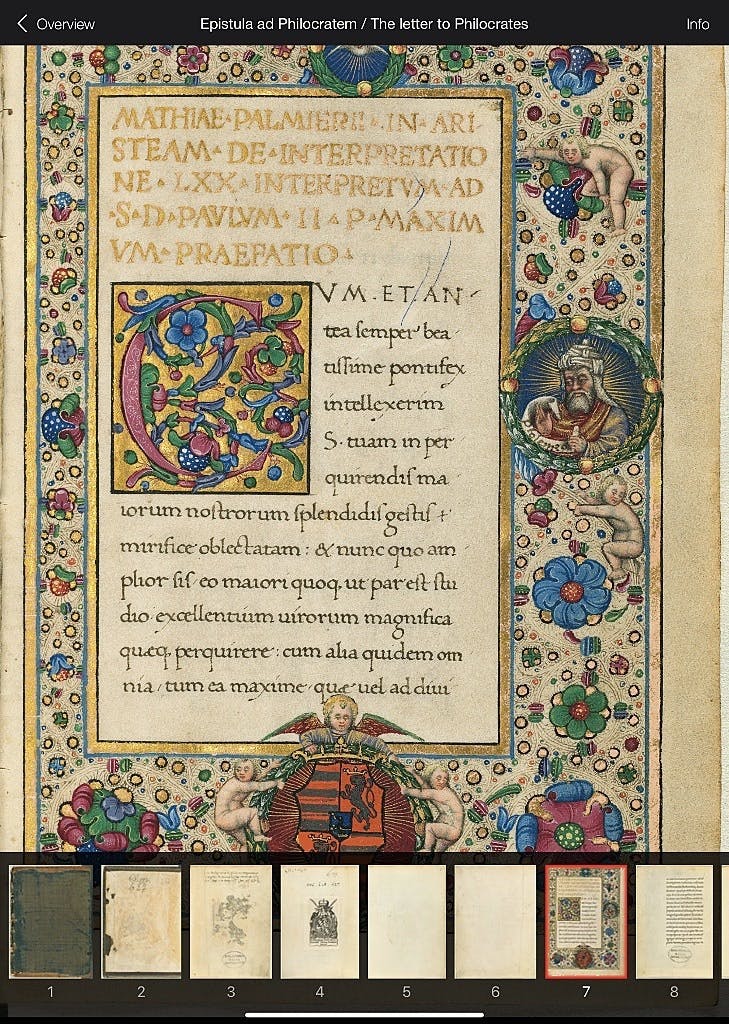 Overview
Epistula ad Philocratem / The letter to Philocrates
Info
MATHIAE·PALMIERII·IN·ARI-
STEAM·DE·INTERPRETATIO
NE·LXX·INTERPRETVM·AD
·S·D·PAVLVM·II·P·MAXIM
VM·PRAEFATIO·
VM·ET·AN-
tea semper bea
tissime pontifex
intellexerim
S. tuam in per
quirendis ma
iorum nostrorum splendidis gestis +
mirifice oblectatam: & nunc quo am
plior sis eo maiori quoq. ut par est stu
dio excellentium uirorum magnifica
quæq. perquirere: cum alia quidem om
nia / tum ea maxime quæ uel ad diui
1
2
3
4
5
6
7
8